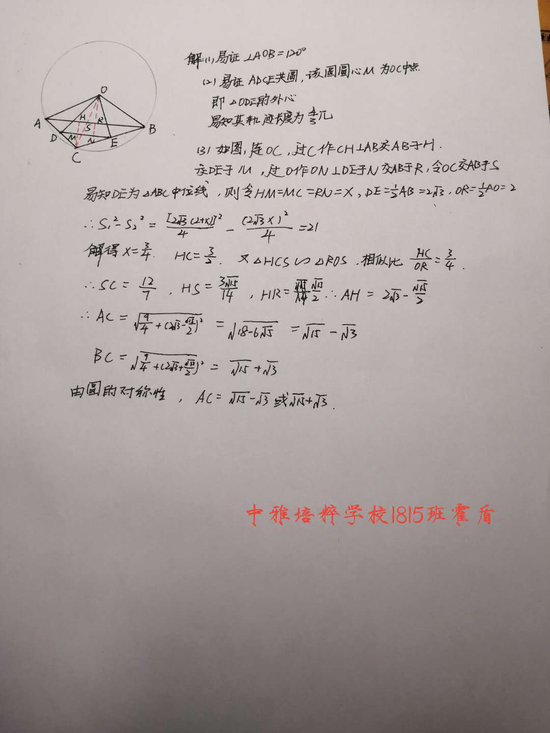 解(1)易证∠AOB=120°
(2)易证ODCE共圆,该圆圆心M为OC中点
即△ODE的外心
易知其轨迹长度为4/3π
(3)如图,连OC,过C作CH⊥AB交AB于H.
交DE于M,过O作ON⊥DE于N交AB于R,令OC交AB于S
易知DE为△ABC中位线,则令HM=MC=RN=X,DE=1/2AB=2√3,OR=1/2AO=2
∴S₁²-S₂²=[2√3(2+x)]²/4-(2√3x)²/4=21
解得x=3/4. HC=3/2. 又△HCS∽△ROS.相似比HC/OR=3/4.
∴SC=12/7, HS=3√15/14, HR=√15/2∴AH=2√3-√15/2
∴AC=√(9/4+(2√3-√15/2)²)=√(18-6√5)=√15-√3
BC=√(9/4+(2√3+√15/2)²)=√15+√3
由圆的对称性,AC=√15-√3或√15+√3.
O
A
H
R
S
B
D
M
N
E
C
中雅培粹学校1815班霍盾